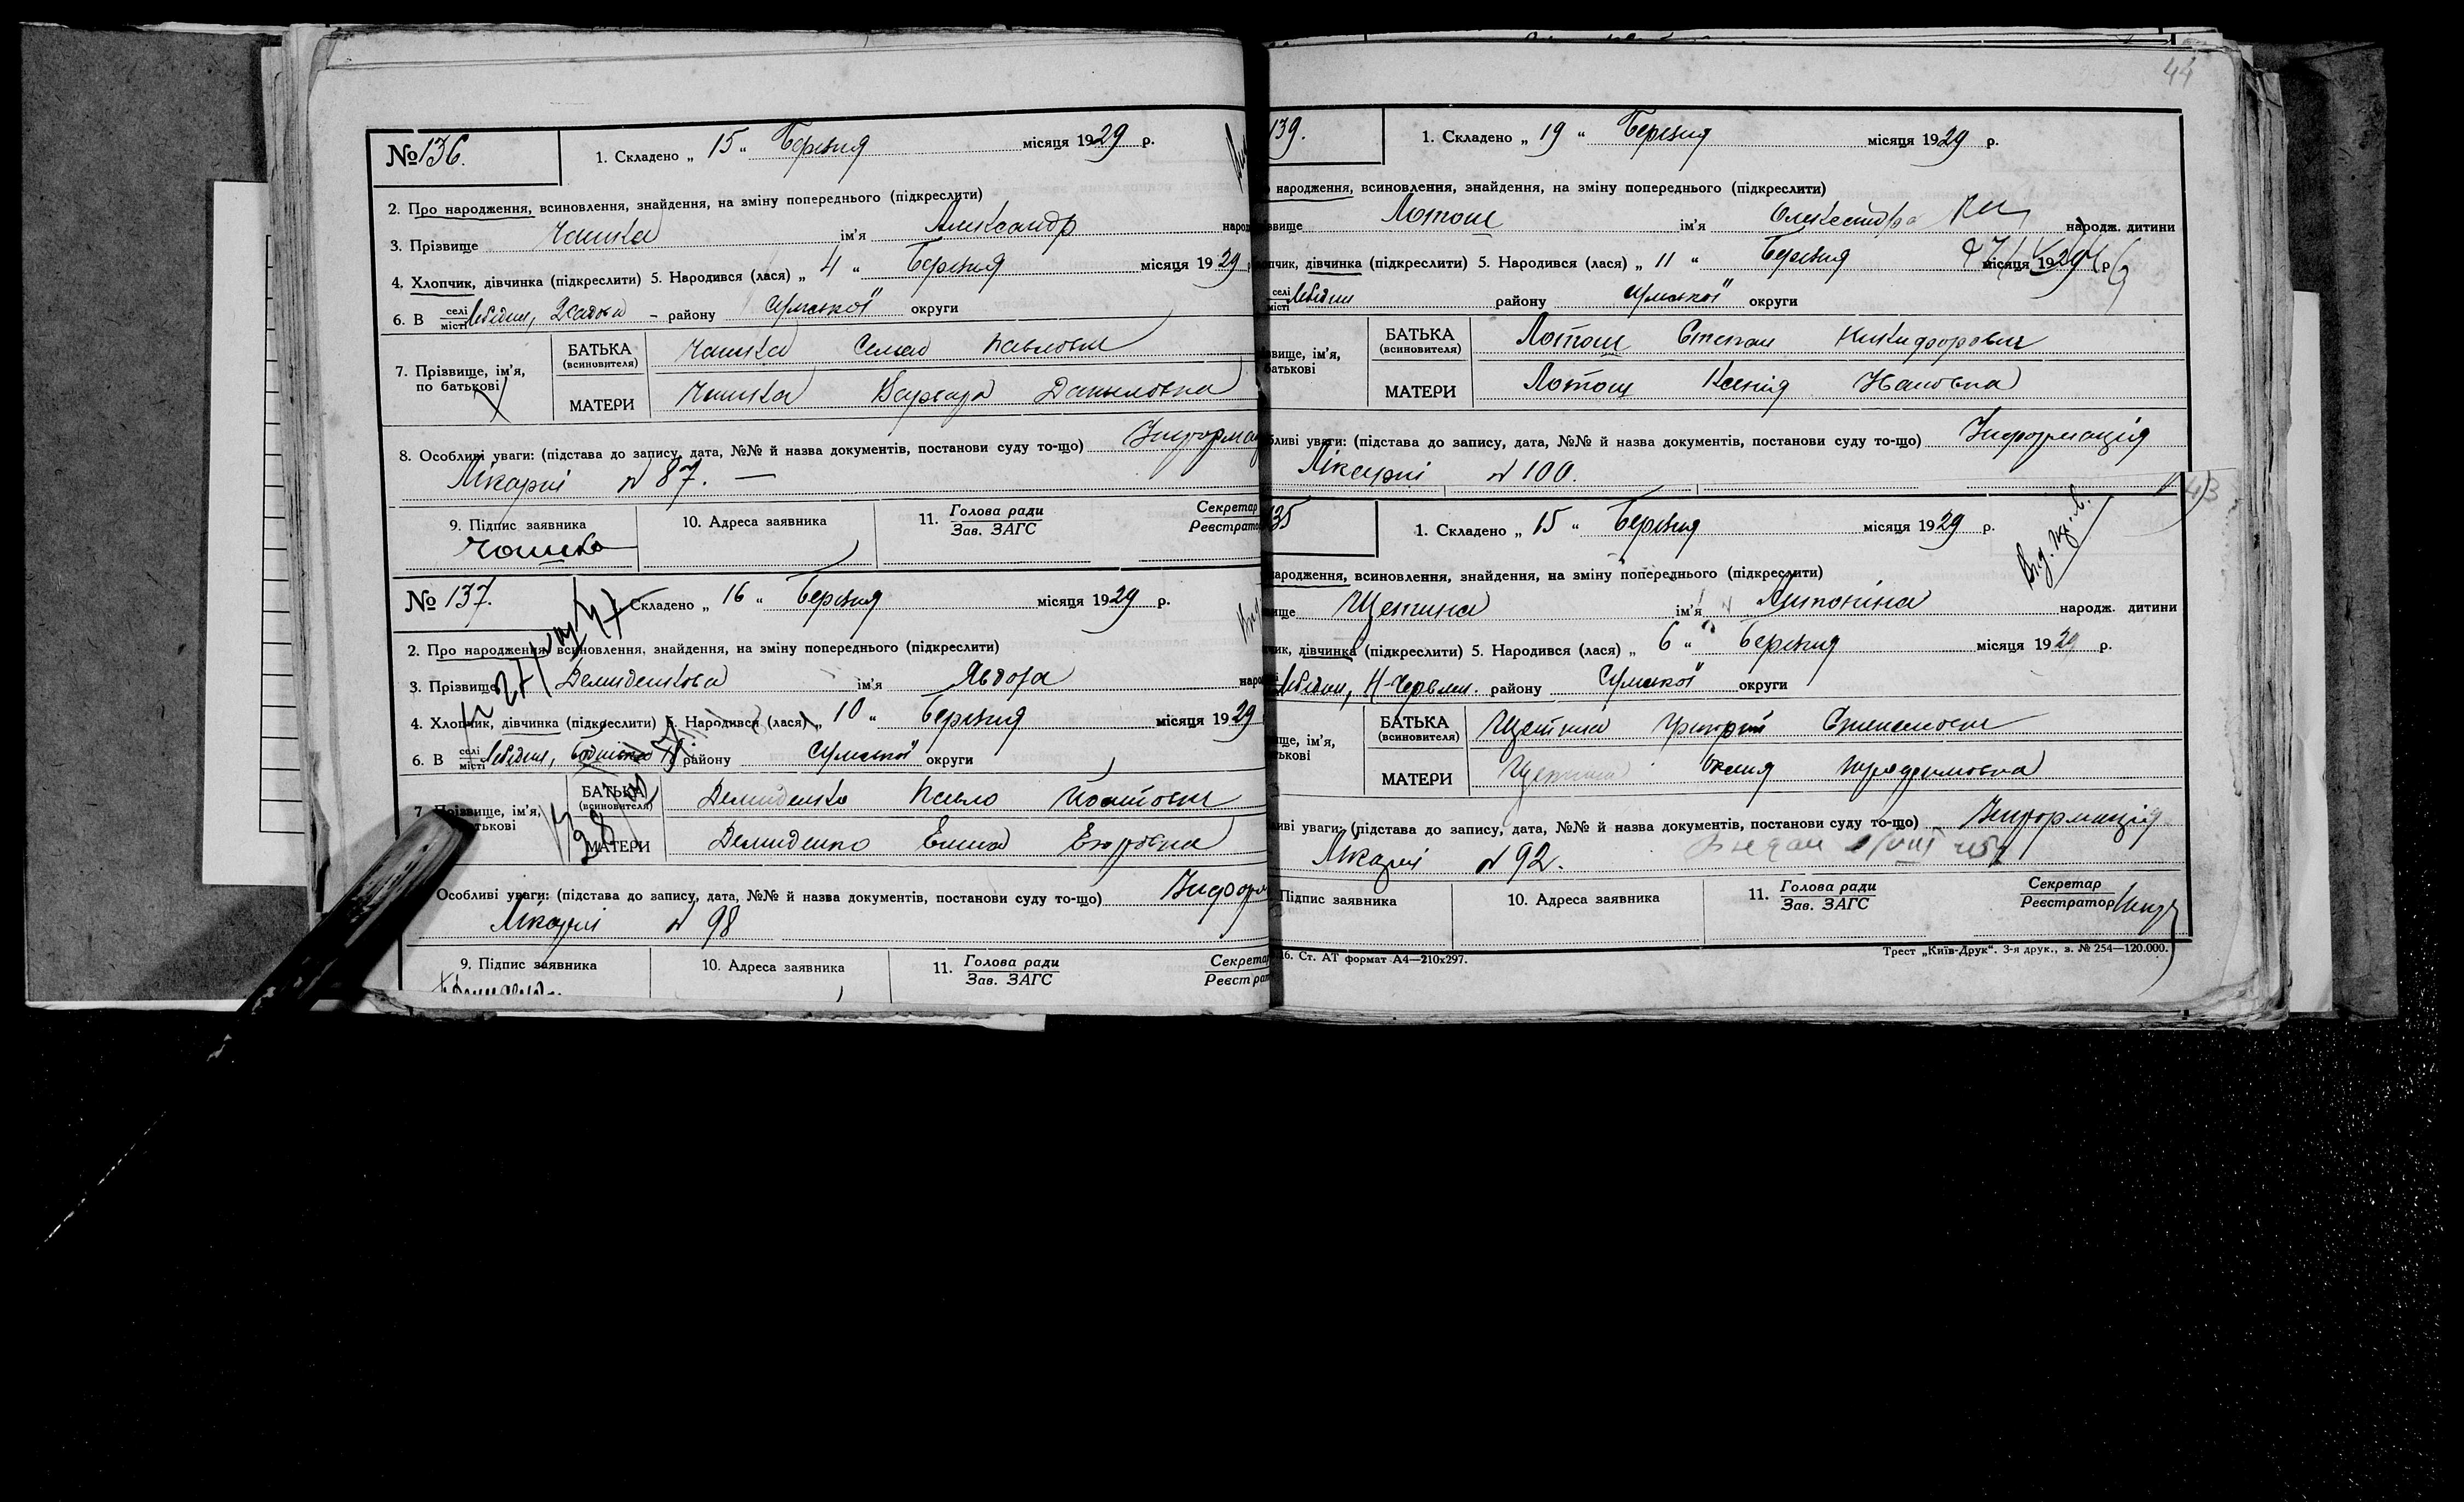 № 136.
1. Складено „ 15 “ Березня місяця 1929 р.
2. Про народження, всиновлення, знайдення, на зміну попереднього (підкреслити)
3. Прізвище ім'я Александр народ
4. Хлопчик, дівчинка (підкреслити) 5. Народився (лася) „ 4 “ Березня місяця 1929
6. В селі місті Лебедин, району Сумської округи
7. Прізвище, ім'я, по батькові
БАТЬКА (всиновителя) Павлович
МАТЕРИ Варвара Даныловна
8. Особливі уваги: (підстава до запису, дата, №№ й назва документів, постанови суду то-що) Інформац
Лікарні № 87. —
9. Підпис заявника 10. Адреса заявника 11. Голова ради Зав. ЗАГС Секретар Реєстратор
№ 137.
Складено „ 16 “ Березня місяця 1929 р.
2. Про народження, всиновлення, знайдення, на зміну попереднього (підкреслити)
3. Прізвище Демиденкова ім'я Явдоха наро
4. Хлопчик, дівчинка (підкреслити) 5. Народився (лася) „ 10 “ Березня місяця 1929
6. В селі місті Лебедин, району Сумської округи
7 Прізвище, ім'я, батькові
БАТЬКА (всиновителя) Демиденко Павло
МАТЕРИ Демиденко Елена Егоровна
Особливі уваги: (підстава до запису, дата, №№ й назва документів, постанови суду то-що) Інформ
Лікарні № 98
9. Підпис заявника 10. Адреса заявника 11. Голова ради Зав. ЗАГС Секретар Реєстрат
44
139.
1. Складено „ 19 “ Березня місяця 1929 р.
народження, всиновлення, знайдення, на зміну попереднього (підкреслити)
звище Лотош ім'я Олександра народж. дитини
пчик, дівчинка (підкреслити) 5. Народився (лася) „ 11 “ Березня місяця 1929 р
селі місті Лебедин району Сумської округи
звище, ім'я, батькові
БАТЬКА (всиновителя) Лотош Степан Никифорович
МАТЕРИ Лотош Ксенія Ивановна
бливі уваги: (підстава до запису, дата, №№ й назва документів, постанови суду то-що) Інформація
Лікарні № 100.
43
135
1. Складено „ 15 “ Березня місяця 1929 р.
ародження, всиновлення, знайдення, на зміну попереднього (підкреслити)
ище Щетина ім'я Антоніна народж. дитини
чик, дівчинка (підкреслити) 5. Народився (лася) „ 6 “ Березня місяця 1929 р.
Лебедин, району Сумської округи
ище, ім'я, ькові
БАТЬКА (всиновителя) Щетина Григорій
МАТЕРИ Щетина
иві уваги: (підстава до запису, дата, №№ й назва документів, постанови суду то-що) Інформація
Лікарні № 92.
Підпис заявника 10. Адреса заявника 11. Голова ради Зав. ЗАГС Секретар Реєстратор
16. Ст. АТ формат А4—210х297. Трест „Київ-Друк“. 3-я друк., з. № 254—120.000.